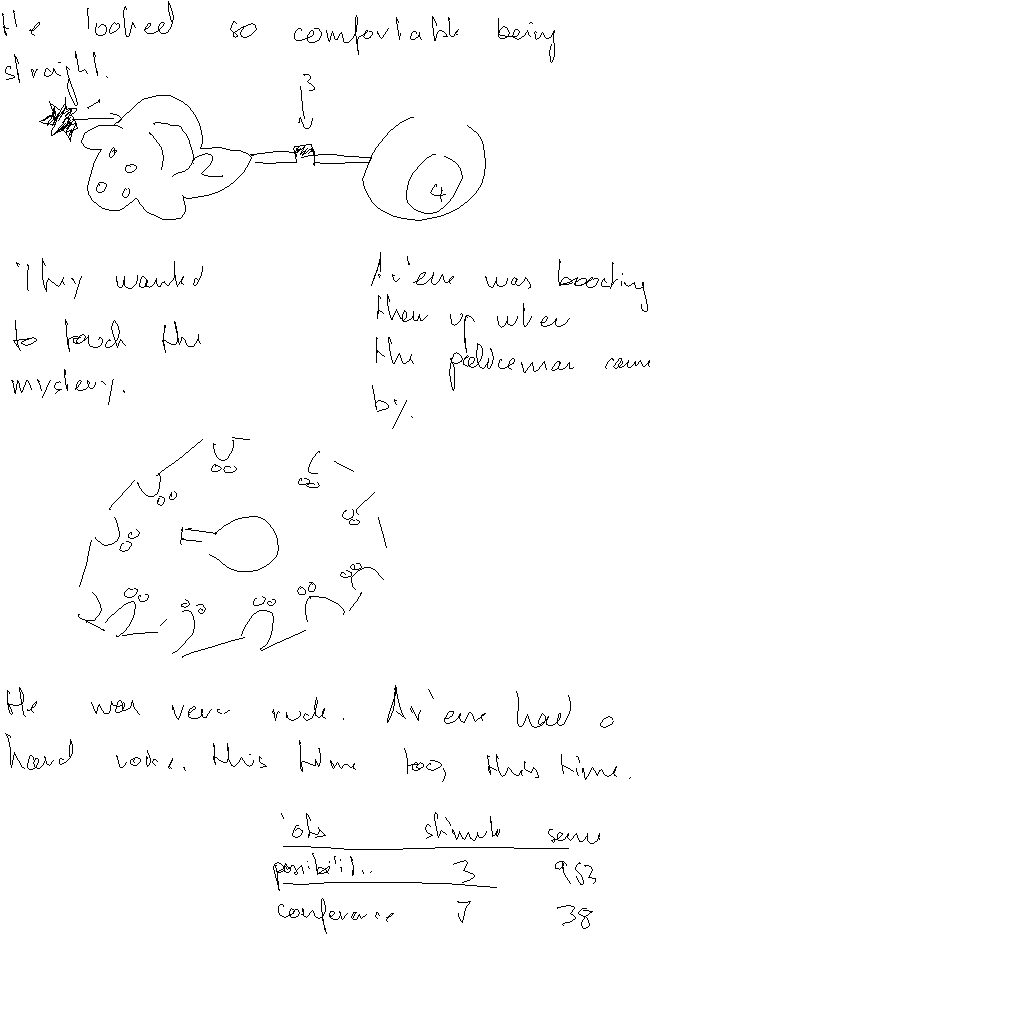 He looked so comfortable being
straight.
3
2
4
They wanted
to touch the
mystery.
was boosting
them up when
the policeman came
by.
He was very rude. had a
hard voice. this time too, this time.
3 953
conference 7 38